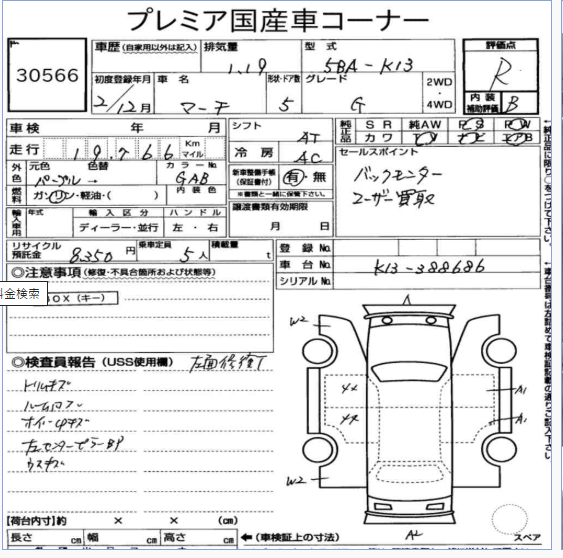 プレミア国産車コーナー
30566
車歴(自家用以外は記入) 排気量 1.19 型式 5BA-K13 評価点 R
初度登録年月 2/12月 車名 マーチ 形状・ドア数 5 グレード G 2WD・4WD 内装補助評価 B
車検 年 月 シフト AT 純正品 SR 純AW PS PW
走行 19,766 Km マイル 冷房 AC カワ
外色 元色 パープル 色替 → カラーNo GAB 新車整備手帳(保証書付) 有・無 ※書類と一緒に保管下さい。 セールスポイント
燃料 ガソリン・軽油・( ) 内装色 バックモニター
輸入車用 年式 輸入区分 ハンドル 譲渡書類有効期限 ユーザー買取
ディーラー・並行 左・右 月 日
リサイクル預託金 8,350円 乗車定員 5人 積載量 t 登録No
車台No K13-388686
シリアルNo
◎注意事項(修復・不具合箇所および状態等)
料金検索
BOX(キー)
◎検査員報告(USS使用欄)
トリムキズ
左センターピラーBP
ウスキズ
W2
A1
A1
W2
A2
【荷台内寸】約 × × (cm)
長さ cm 幅 cm 高さ cm ←(車検証上の寸法) スペア